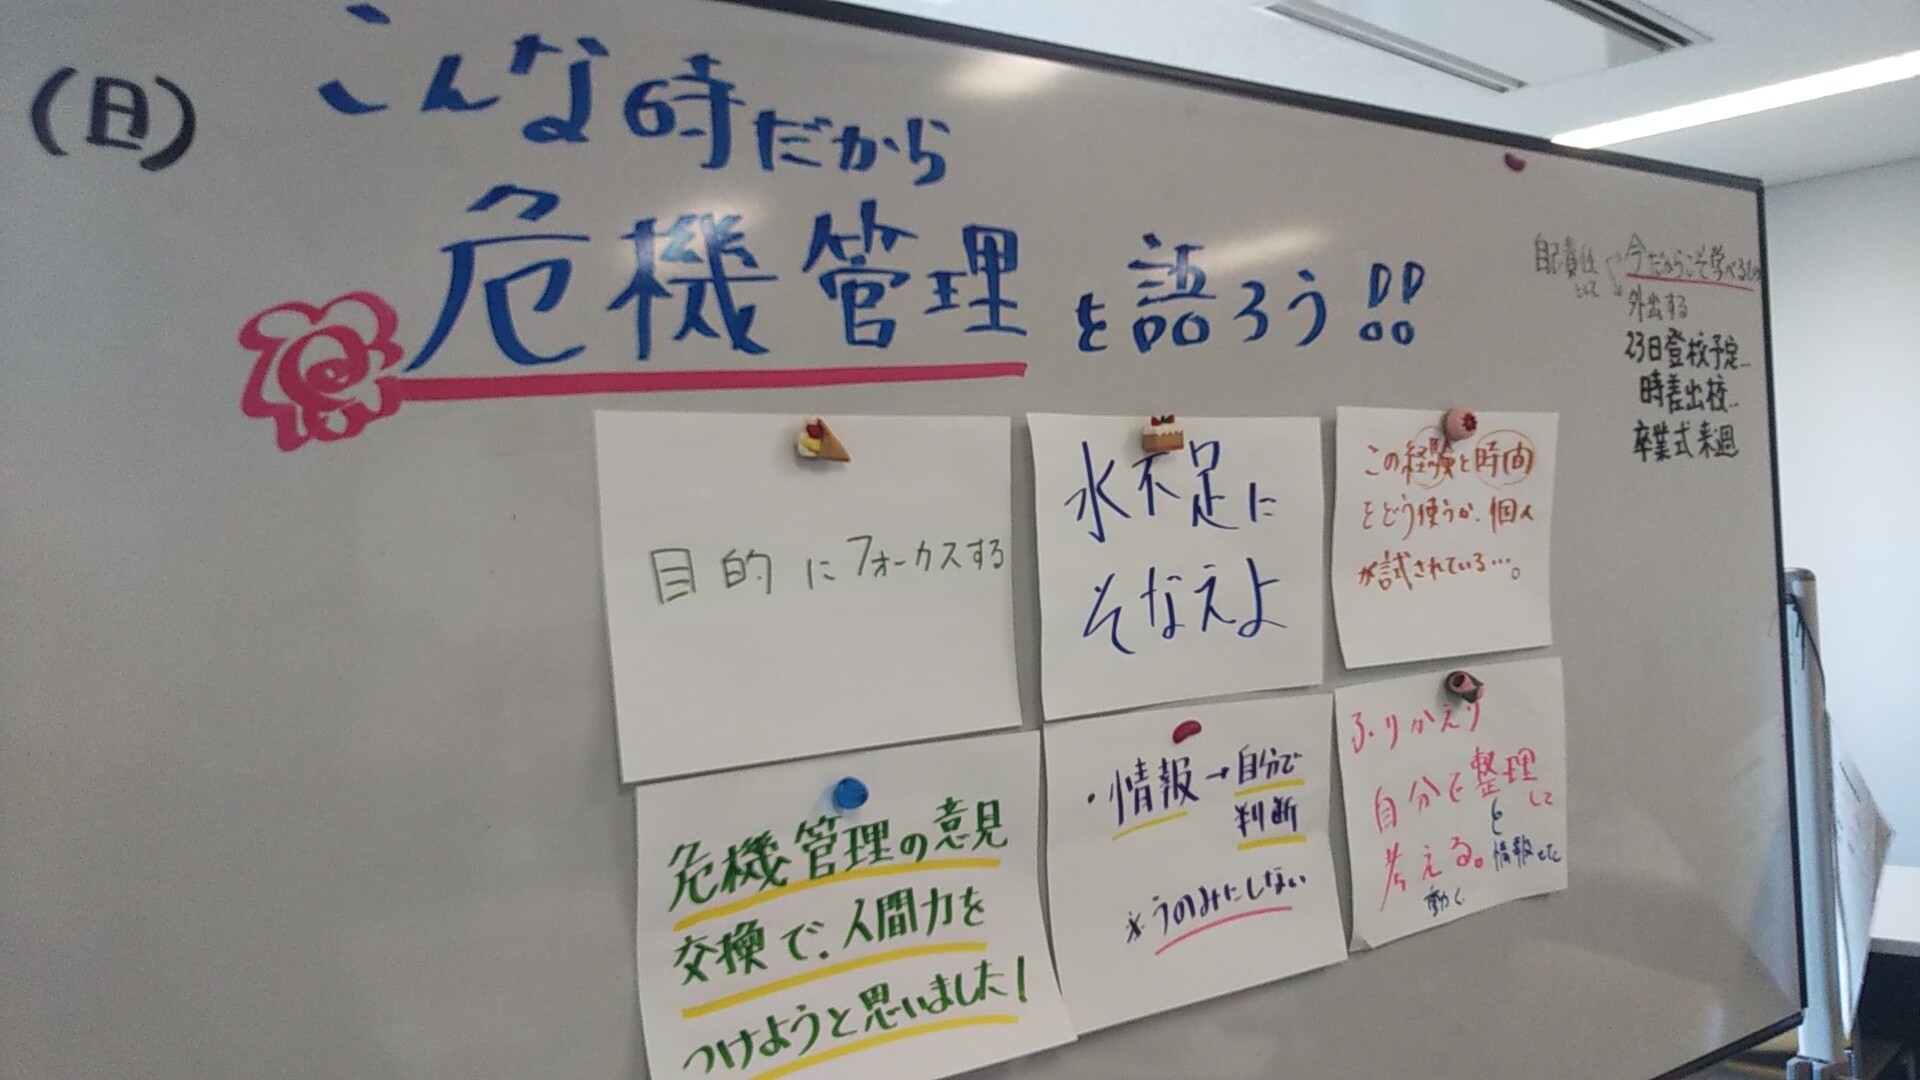 (日)
こんな時だから
危機管理を語ろう!!
自己責任 今だからこそ学べるもの
として 外出する
23日登校予定…
時差出校…
卒業式来週
目的にフォーカスする
水不足に
そなえよ
この経験と時間
をどう使うか、個人
が試されている…。
危機管理の意見
交換で、人間力を
つけようと思いました!
・情報→自分で
判断
※うのみにしない
ふりかえり
自分で整理して
と
考える。情報
動く